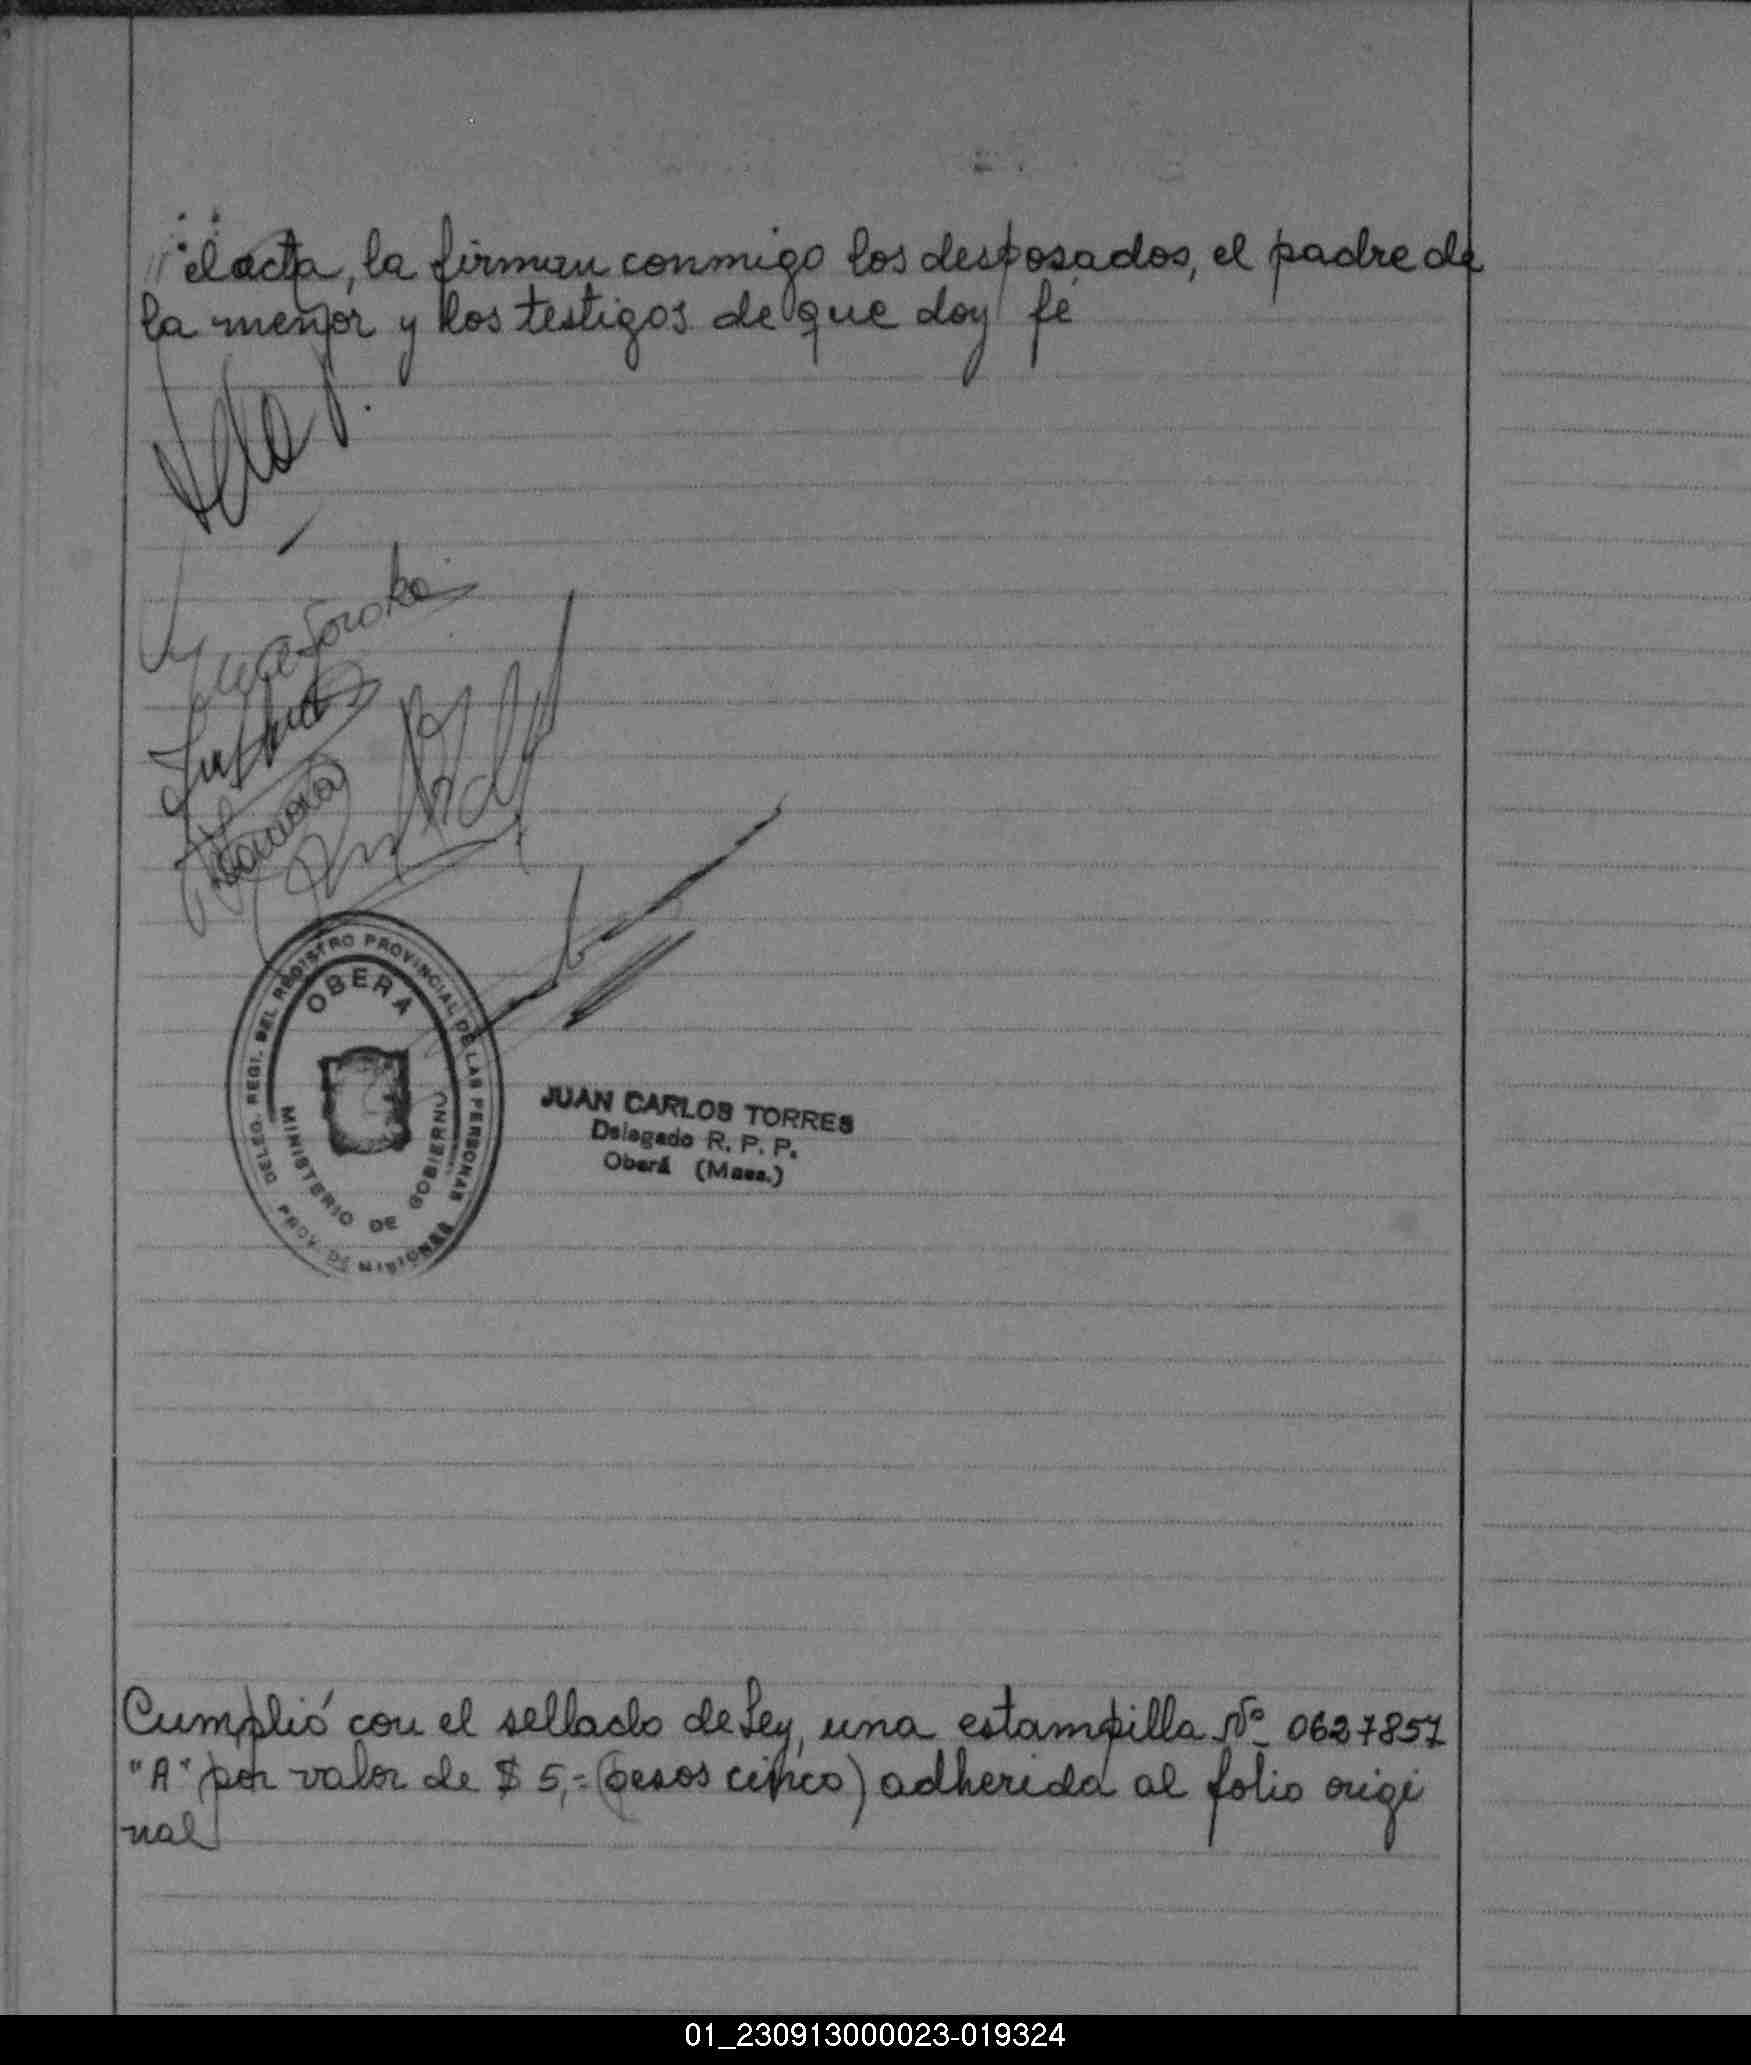 el acta, la firman conmigo los desposados, el padre de
la menor y los testigos de que doy fé
OBERA
DELEG. REGI. DEL REGISTRO PROVINCIAL DE LAS PERSONAS
MINISTERIO DE GOBIERNO
PROV. DE MISIONES
JUAN CARLOS TORRES
Delegado R. P. P.
Oberá (Mnes.)
Cumplió con el sellado de Ley, una estampilla Nº 0627857
"A" por valor de $ 5,= (pesos cinco) adherida al folio origi
nal
01_230913000023-019324